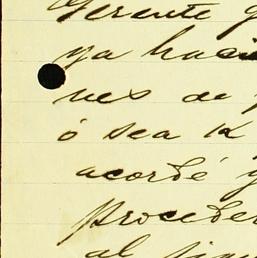 Gerente g
ya haci
nes de
ó sea 12
acordé y
proceder
al sigu